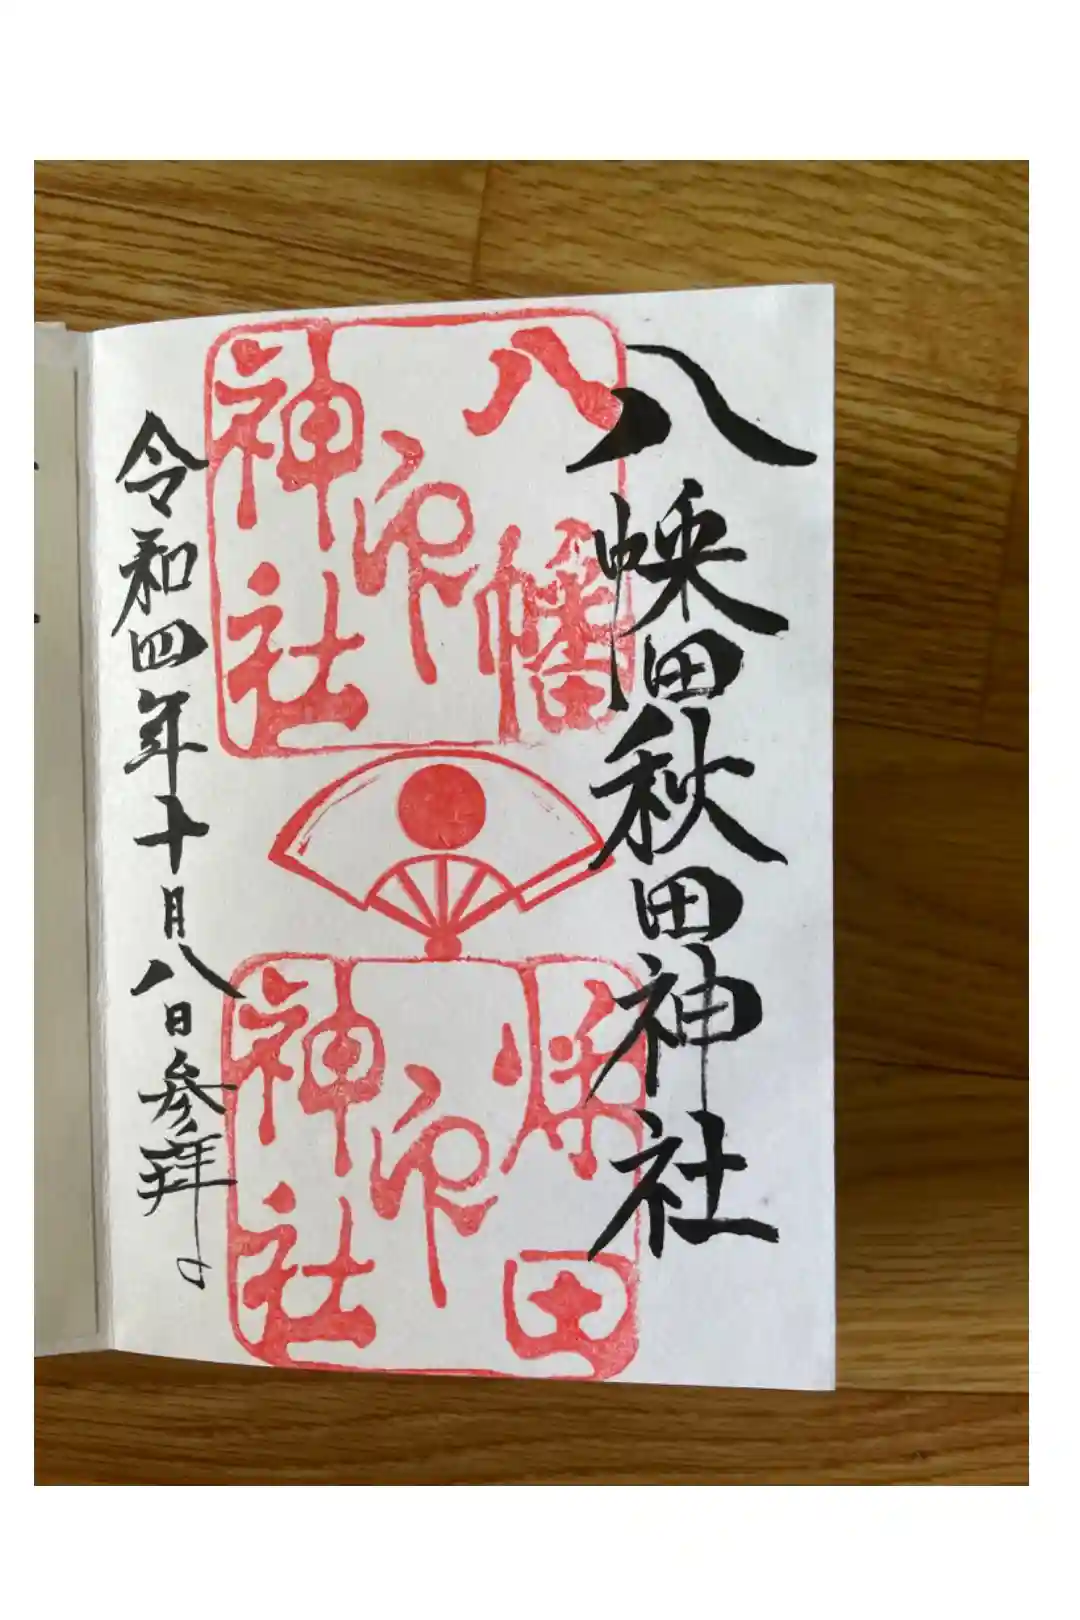 八幡秋田神社
令和四年十月八日参拝
八幡
神社
印
秋田
神社
印